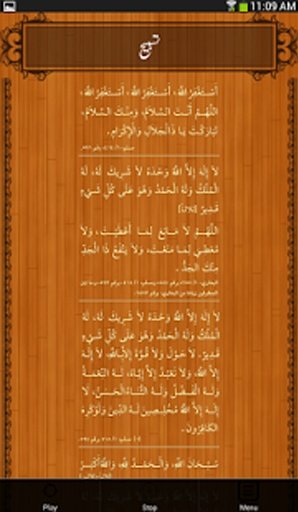 11:09 AM
تسبیح
أَسْتَغْفِرُ اللهَ، أَسْتَغْفِرُ اللهَ، أَسْتَغْفِرُ اللهَ،
اللَّهُمَّ أَنْتَ السَّلاَمُ، وَمِنْكَ السَّلاَمُ،
تَبَارَكْتَ يَا ذَا الْجَلاَلِ وَالْإِكْرَامِ.
لاَ إِلَهَ إِلاَّ اللهُ وَحْدَهُ لاَ شَرِيكَ لَهُ، لَهُ
الْمُلْكُ وَلَهُ الْحَمْدُ وَهُوَ عَلَى كُلِّ شَيْءٍ
قَدِيرٌ
اللَّهُمَّ لاَ مَانِعَ لِمَا أَعْطَيْتَ، وَلاَ
مُعْطِيَ لِمَا مَنَعْتَ، وَلاَ يَنْفَعُ ذَا الْجَدِّ
مِنْكَ الجَدُّ.
لاَ إِلَهَ إِلاَّ اللهُ وَحْدَهُ لاَ شَرِيكَ لَهُ، لَهُ
الْمُلْكُ وَلَهُ الْحَمْدُ وَهُوَ عَلَى كُلِّ شَيْءٍ
قَدِيرٌ. لاَ حَوْلَ وَلاَ قُوَّةَ إِلاَّ بِاللهِ، لاَ إِلَهَ
إِلاَّ اللهُ، وَلاَ نَعْبُدُ إِلاَّ إِيَّاهُ، لَهُ النِّعْمَةُ
وَلَهُ الْفَضْلُ وَلَهُ الثَّنَاءُ الْحَسَنُ، لاَ
إِلَهَ إِلاَّ اللهُ مُخْلِصِينَ لَهُ الدِّينَ وَلَوْ كَرِهَ
الْكَافِرُونَ.
سُبْحَانَ اللهِ، وَالْحَمْدُ لِلَّهِ، وَاللهُ أَكْبَرُ
Play Stop Menu